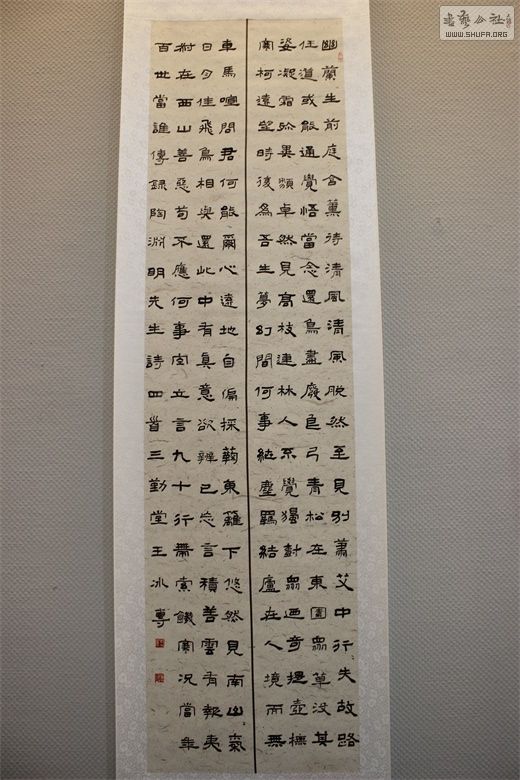 書藝公社
WWW.SHUFA.ORG
幽蘭生前庭含薰待清風清風脫然至見別蕭艾中行失故路
任道或能通覺悟當念還鳥盡廢良弓青松在東園眾草沒其
姿凝霜殄異類卓然見高枝連林人不覺獨樹眾迺奇提壺撫
寒柯遠望時復為吾生夢幻間何事紲塵羈結廬在人境而無
車馬喧問君何能爾心遠地自偏採菊東籬下悠然見南山氣
日夕佳飛鳥相與還此中有真意欲辨已忘言積善雲有報夷
叔在西山善惡苟不應何事空立言九十行帶索饑寒況當年
百世當誰傳錄陶淵明先生詩四首三勤堂王冰